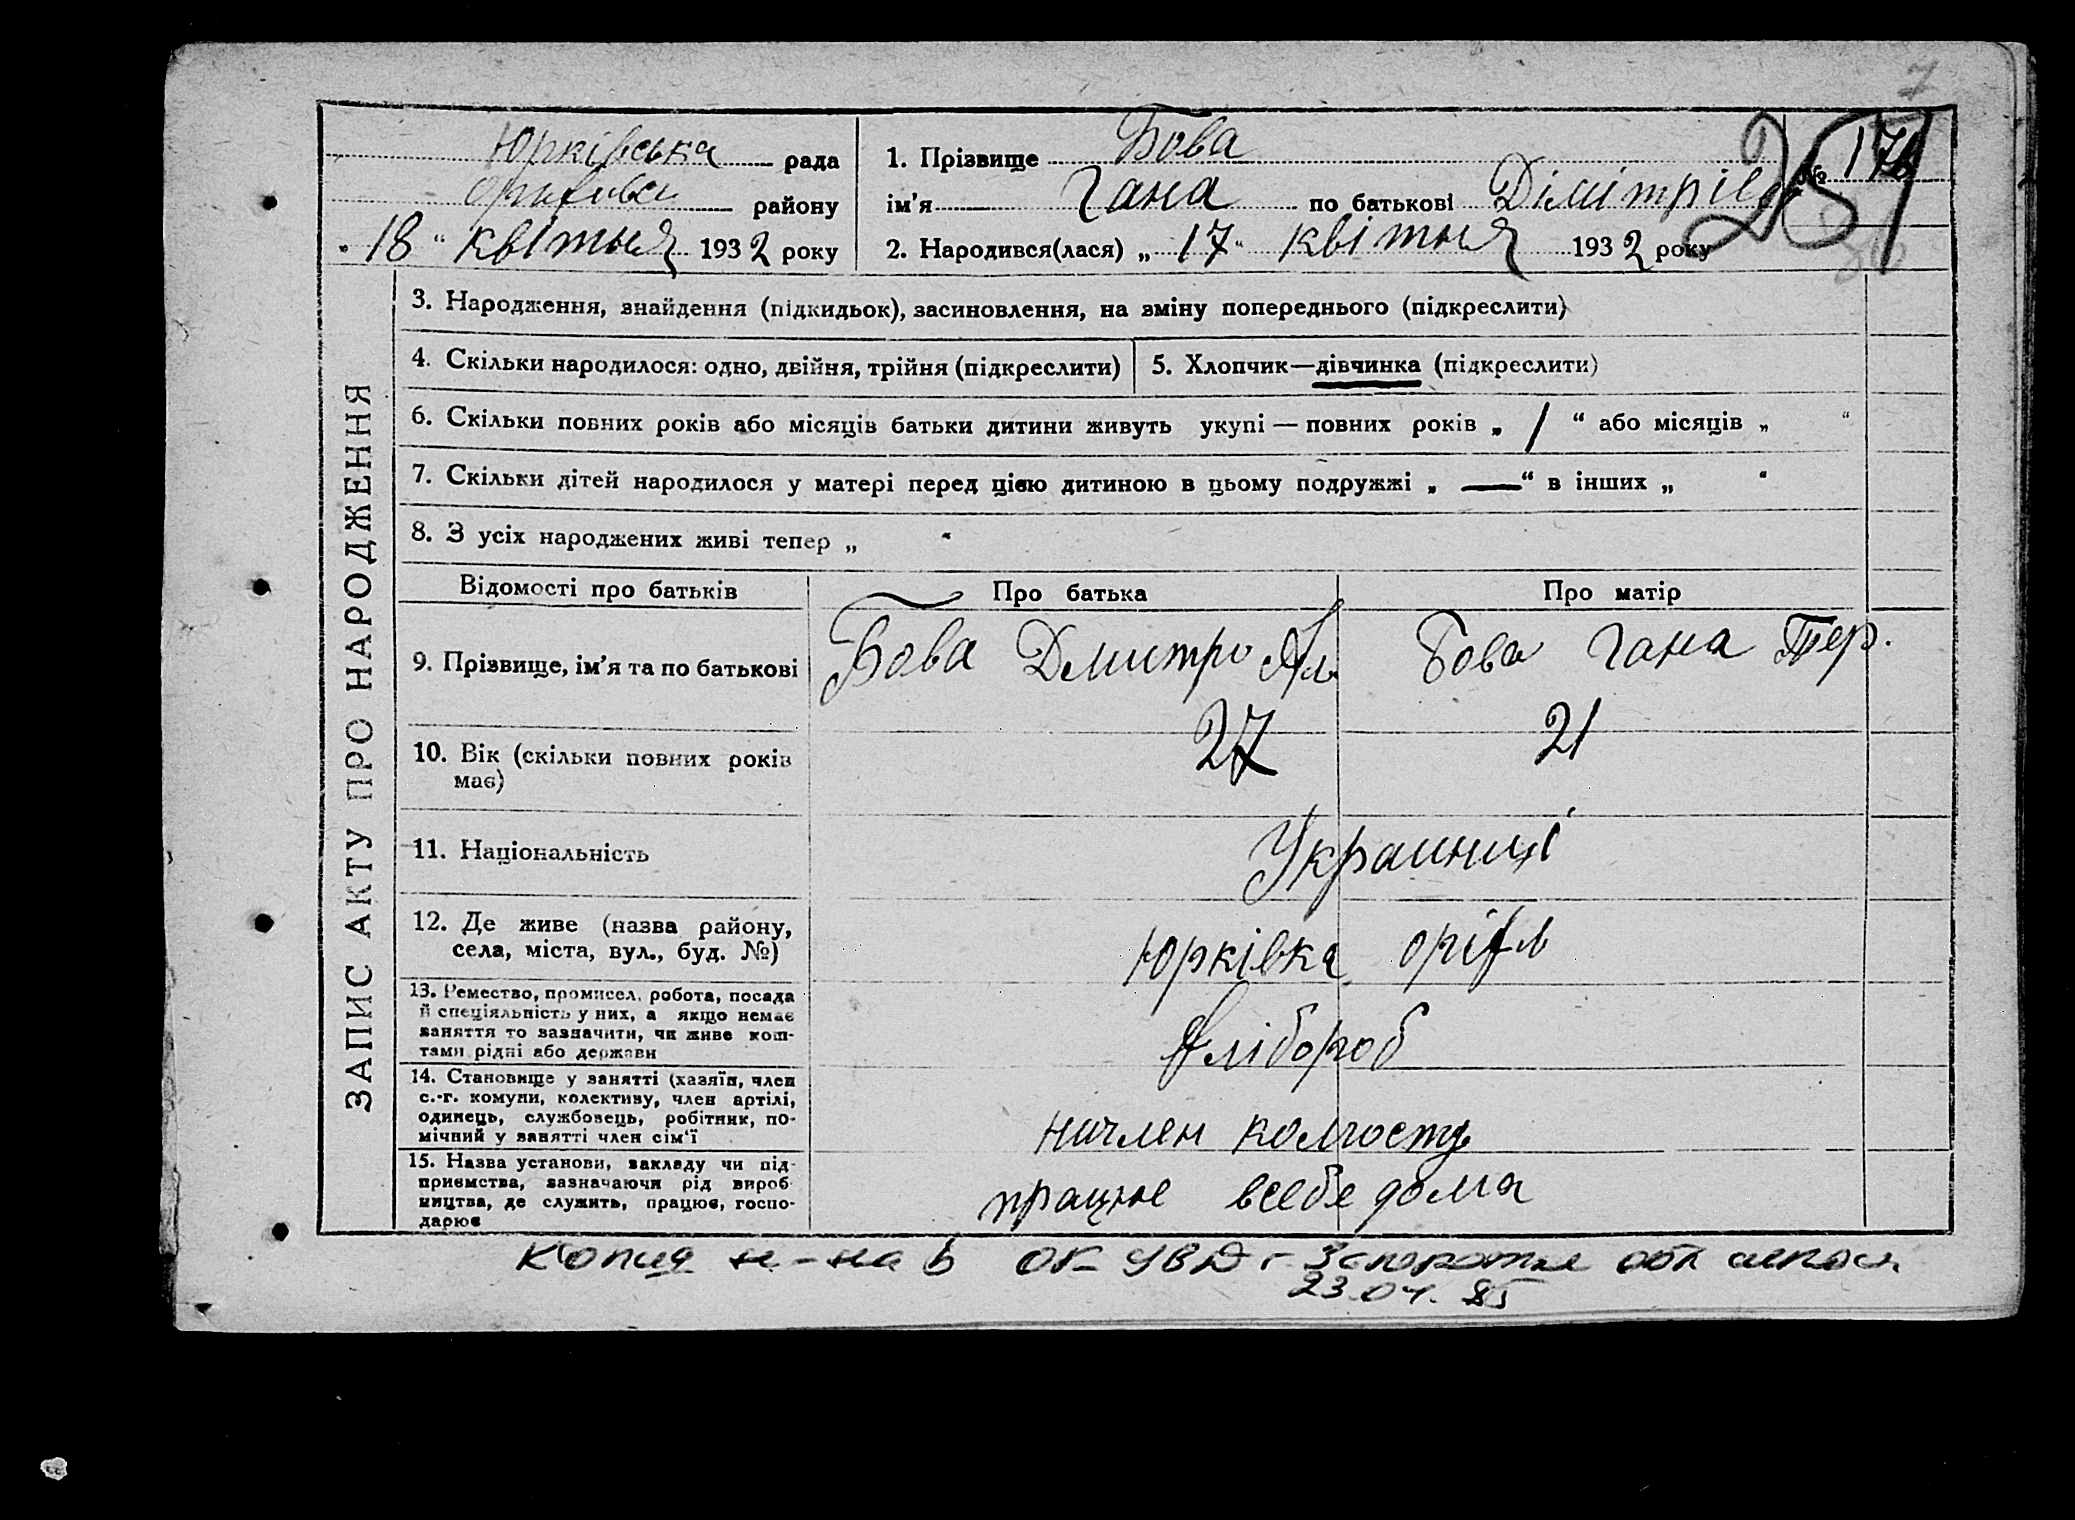 7
Юрківська рада
району
„ 18 “ квітня 1932 року
1. Прізвище Бова
№ 17
251
ім’я Гана по батькові Дімітрієв
2. Народився(лася) „ 17 “ квітня 1932 року
ЗАПИС АКТУ ПРО НАРОДЖЕННЯ
3. Народження, знайдення (підкидьок), засиновлення, на зміну попереднього (підкреслити)
4. Скільки народилося: одно, двійня, трійня (підкреслити)
5. Хлопчик—дівчинка (підкреслити)
6. Скільки повних років або місяців батьки дитини живуть укупі — повних років „ 1 “ або місяців „ “
7. Скільки дітей народилося у матері перед цією дитиною в цьому подружжі „ — “ в інших „ “
8. З усіх народжених живі тепер „ “
Відомості про батьків Про батька Про матір
9. Прізвище, ім’я та по батькові Бова Дмитро Ял. Бова Гана Тер.
10. Вік (скільки повних років має) 27 21
11. Національність Украинці
12. Де живе (назва району,
села, міста, вул., буд. №)
Юрківка оріхів
13. Ремество, промисел, робота, посада
й спеціяльність у них, а якщо немає
заняття то зазначити, чи живе кош-
тами рідні або держави
Хлібороб
14. Становище у занятті (хазяїн, член
с.-г. комуни, колективу, член артілі,
одинець, службовець, робітник, по-
мічний у занятті член сім’ї
ничлен колгоспу
15. Назва установи, закладу чи під-
приємства, зазначаючи рід вироб-
ництва, де служить, працює, госпо-
дарює
працює всебе дома
Копия н-на в ОК УВД г Запорожья обл
23.04. 85